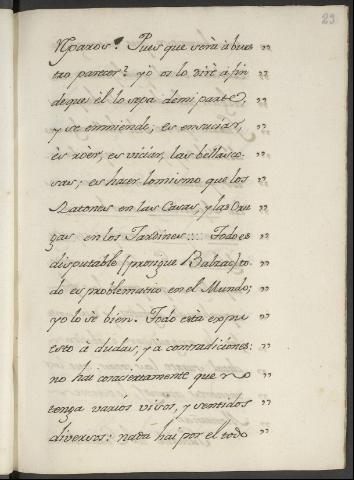 29
Nparos? Pues que será à bues „
tro parecer? yò os lo dirè à fin „
deque èl lo sepa demi parte, „
y se enmiendo; es ensuciar, „
ès roèr, es viciar, las bellas co- „
sas; es hacer lomismo que los „
Ratones en las Casas, y las Oru „
gas en los Jardines:::: Todo es „
disputable (prosigue Balzac) to- „
do es problematico en el Mundo; „
yo lo sè bien. Todo està expu „
esto à dudas, y a contradiciones: „
no hai conciertamente que no „
tenga varios visos, y sentidos „
diversos: nada hai por el todo „